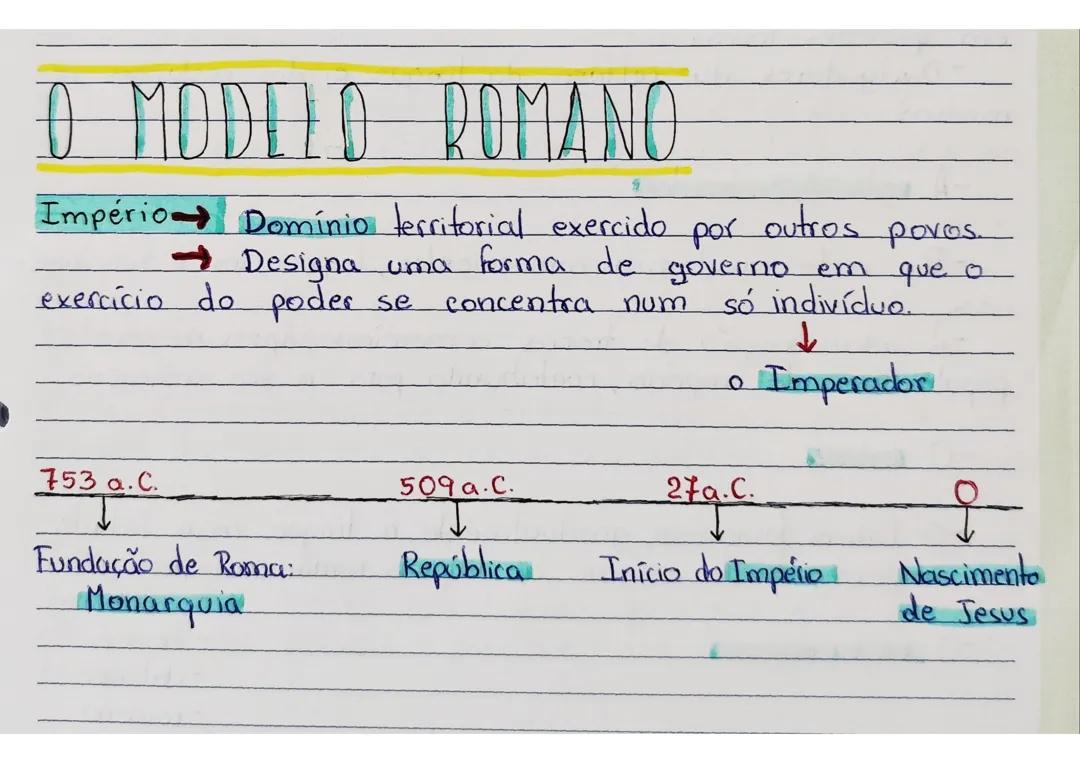 O MODELO ROMANO
Império→ Domínio territorial exercido por outros povos.
→ Designa uma forma de governo em que o
exercício do poder se concentra num só indivíduo.
↓
o Imperador
753 a.C. 509 a.C. 27a.C. 0
Fundação de Roma: República Início do Império Nascimento
Monarquia de Jesus